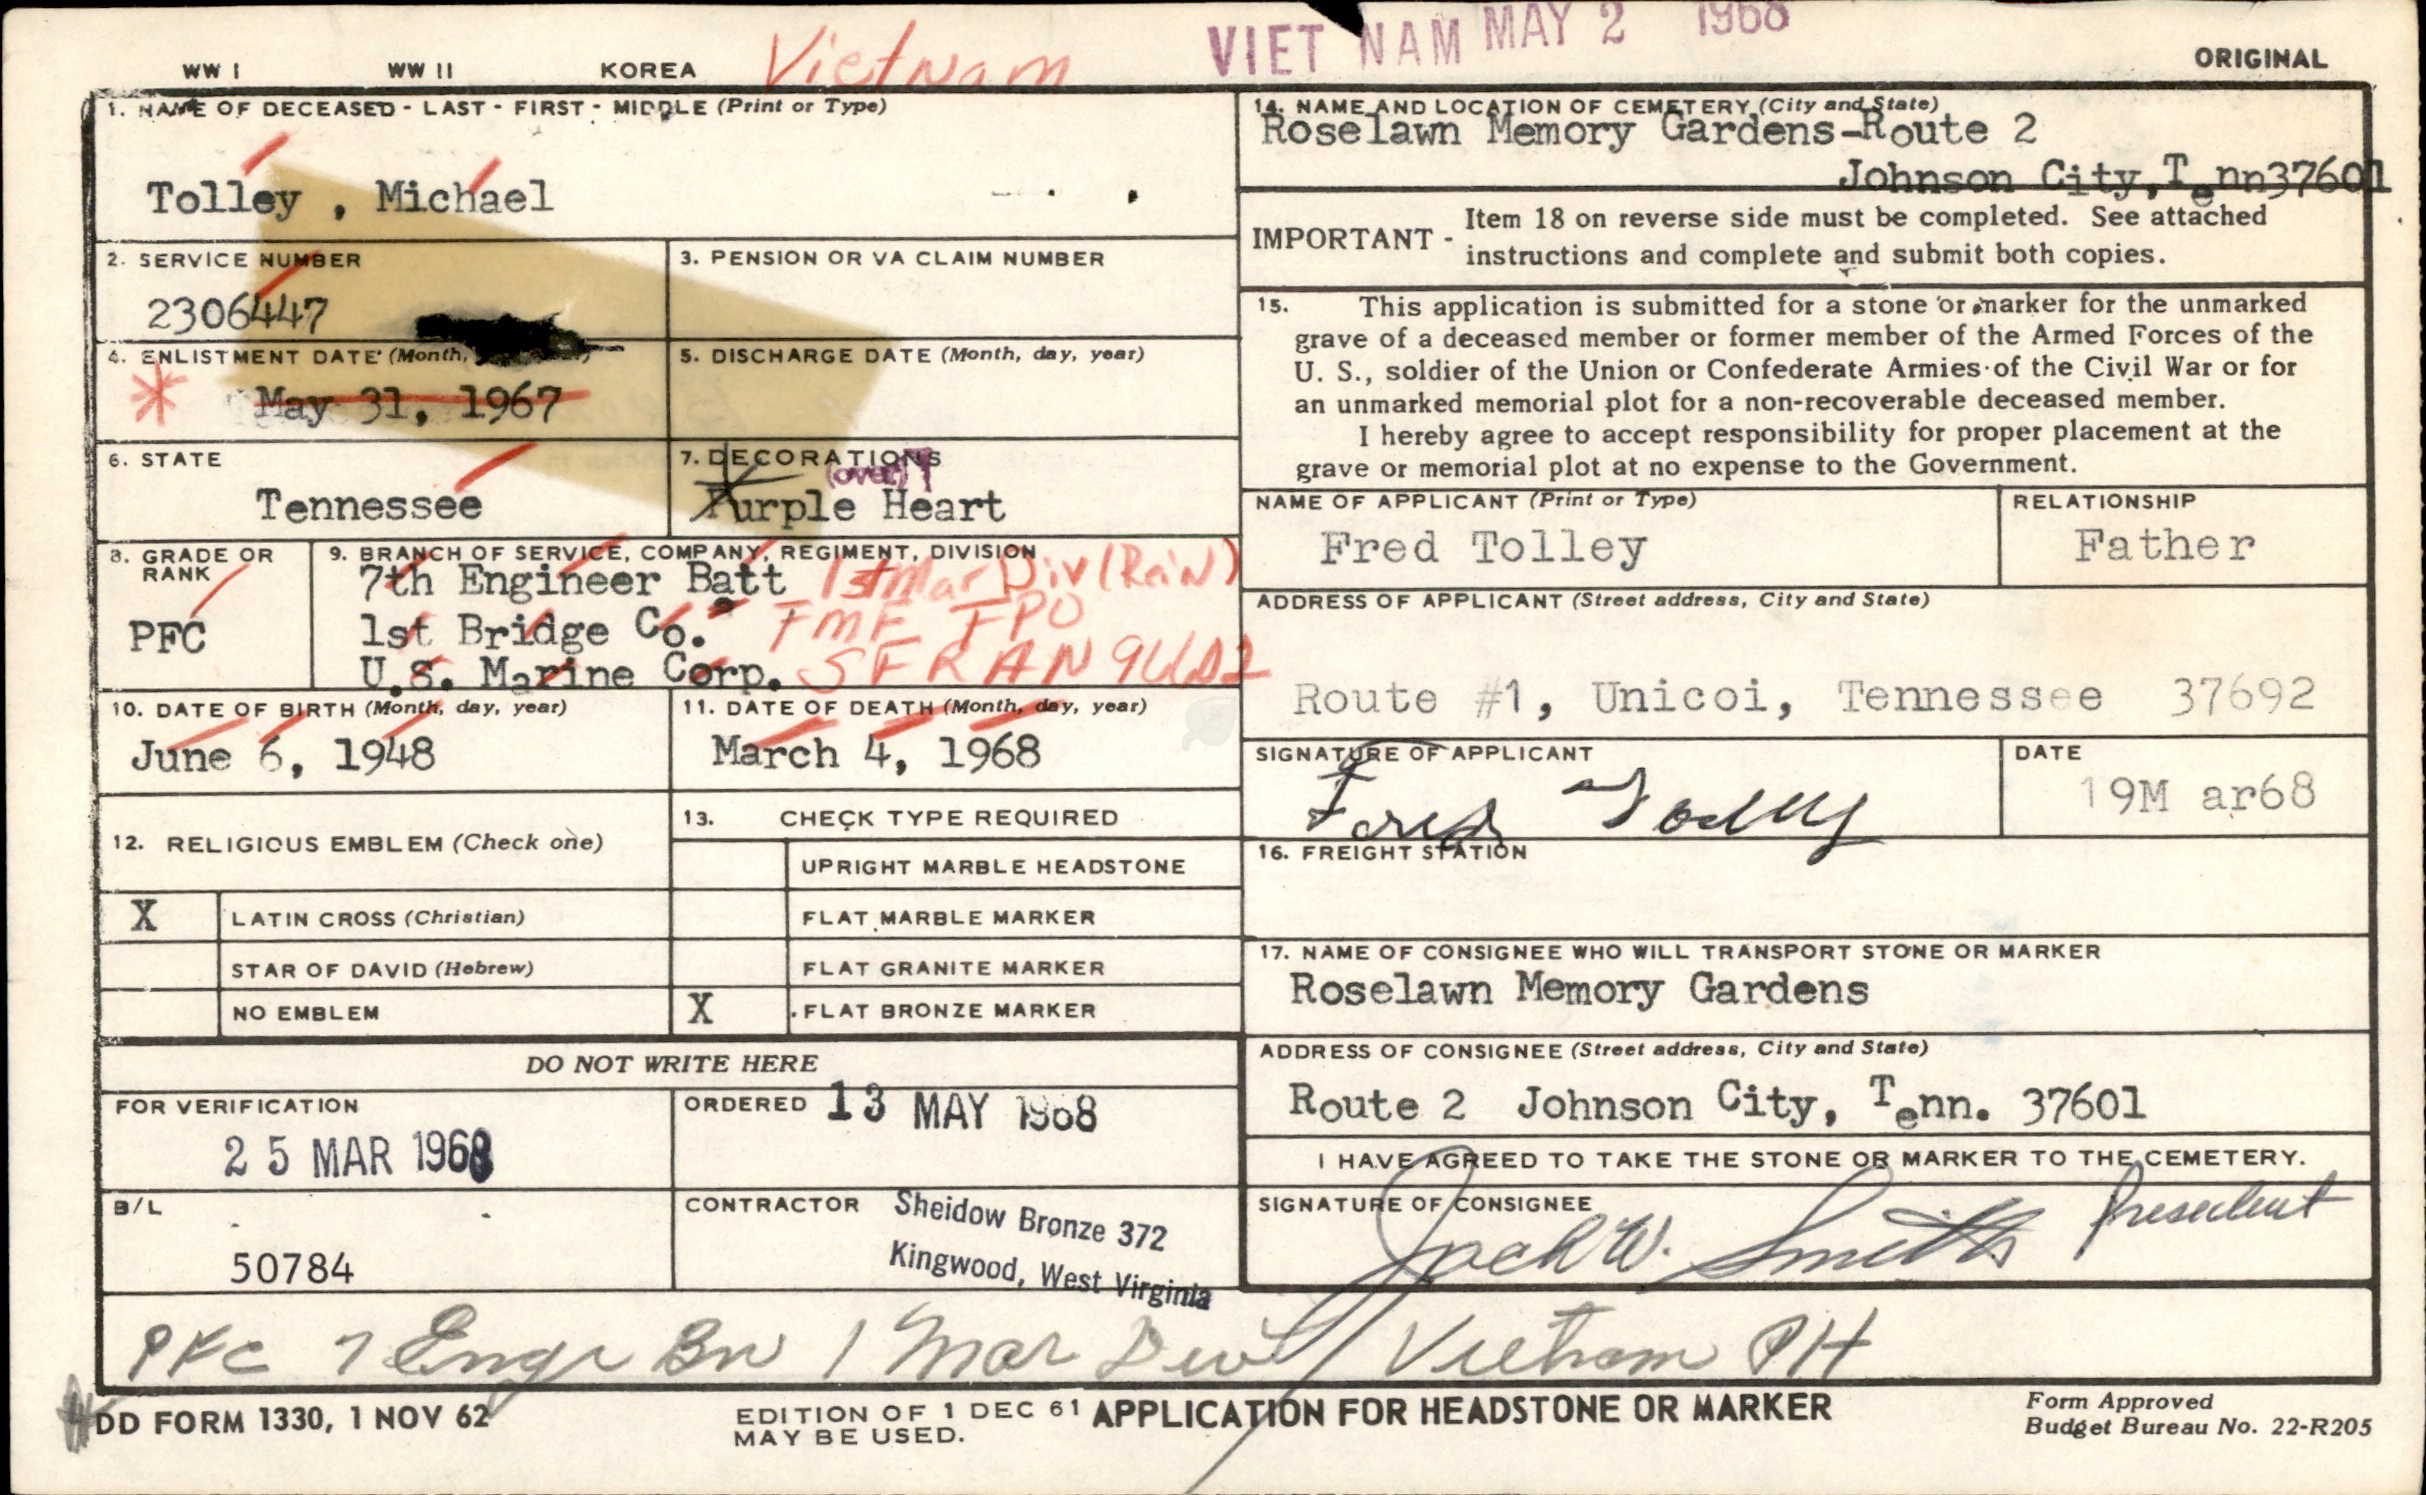 VIET NAM MAY 2 1968
WW I WW II KOREA Vietnam ORIGINAL
1. NAME OF DECEASED - LAST - FIRST - MIDDLE (Print or Type)
Tolley , Michael
2. SERVICE NUMBER
2306447
3. PENSION OR VA CLAIM NUMBER
4. ENLISTMENT DATE (Month,
* May 31, 1967
5. DISCHARGE DATE (Month, day, year)
6. STATE
Tennessee
7. DECORATIONS
(over)
Purple Heart
8. GRADE OR
RANK
PFC
9. BRANCH OF SERVICE, COMPANY, REGIMENT, DIVISION
7th Engineer Batt 1st Mar Div (Rein)
1st Bridge Co. FMF FPO
U.S. Marine Corp. SFRAN
10. DATE OF BIRTH (Month, day, year)
June 6, 1948
11. DATE OF DEATH (Month, day, year)
March 4, 1968
12. RELIGIOUS EMBLEM (Check one)
X LATIN CROSS (Christian)
STAR OF DAVID (Hebrew)
NO EMBLEM
13. CHECK TYPE REQUIRED
UPRIGHT MARBLE HEADSTONE
FLAT MARBLE MARKER
FLAT GRANITE MARKER
X FLAT BRONZE MARKER
DO NOT WRITE HERE
FOR VERIFICATION
25 MAR 1968
ORDERED 13 MAY 1968
B/L
50784
CONTRACTOR Sheidow Bronze 372
Kingwood, West Virginia
14. NAME AND LOCATION OF CEMETERY (City and State)
Roselawn Memory Gardens-Route 2
Johnson City, Tenn37601
IMPORTANT - Item 18 on reverse side must be completed. See attached
instructions and complete and submit both copies.
15. This application is submitted for a stone or marker for the unmarked
grave of a deceased member or former member of the Armed Forces of the
U. S., soldier of the Union or Confederate Armies of the Civil War or for
an unmarked memorial plot for a non-recoverable deceased member.
I hereby agree to accept responsibility for proper placement at the
grave or memorial plot at no expense to the Government.
NAME OF APPLICANT (Print or Type)
Fred Tolley
RELATIONSHIP
Father
ADDRESS OF APPLICANT (Street address, City and State)
Route #1, Unicoi, Tennessee 37692
SIGNATURE OF APPLICANT
Fred Tolley
DATE
19M ar68
16. FREIGHT STATION
17. NAME OF CONSIGNEE WHO WILL TRANSPORT STONE OR MARKER
Roselawn Memory Gardens
ADDRESS OF CONSIGNEE (Street address, City and State)
Route 2 Johnson City, Tenn. 37601
I HAVE AGREED TO TAKE THE STONE OR MARKER TO THE CEMETERY.
SIGNATURE OF CONSIGNEE
Jack W. Smith President
PFC 7 Engr Bn 1 Mar Div Vietnam PH
DD FORM 1330, 1 NOV 62
EDITION OF 1 DEC 61
MAY BE USED.
APPLICATION FOR HEADSTONE OR MARKER
Form Approved
Budget Bureau No. 22-R205